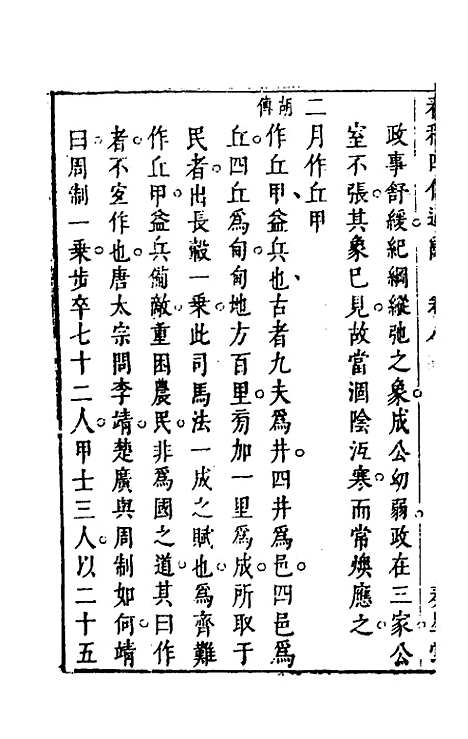 政事舒緩紀綱縱弛之象成公幼弱政在三家公
室不張其象已見故當涸陰沍寒而常燠應之
二月作丘甲
胡傳
作丘甲益兵也古者九夫為井四井為邑四邑為
丘四丘為甸甸地方百里旁加一里爲成所取于
民者出長轂一乗此司馬法一成之賦也為齊難
作丘甲益兵備敵重困農民非為國之道其曰作
者不宜作也唐太宗問李靖楚廣與周制如何靖
曰周制一乗步卒七十二人甲士三人以二十五